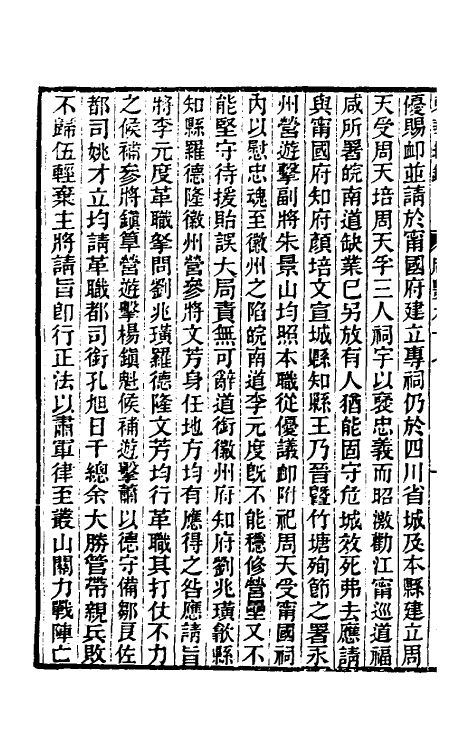 優賜卹並請於甯國府建立專祠仍於四川省城及本縣建立周
天受周天培周天孚三人祠宇以襃忠義而昭激勸江甯巡道福
咸所署皖南道缺業已另放有人猶能固守危城效死弗去應請
與甯國府知府顏培文宣城縣知縣王乃晉曁竹塘殉節之署永
州營遊擊副將朱景山均照本職從優議卹附祀周天受甯國祠
內以慰忠魂至徽州之陷皖南道李元度旣不能穩修營壘又不
能堅守待援貽誤大局責無可辭道銜徽州府知府劉兆璜歙縣
知縣羅德隆徽州營參將文芳身任地方均有應得之咎應請旨
將李元度革職拏問劉兆璜羅德隆文芳均行革職其打仗不力
之候補參將鎮筸營遊擊楊鎮魁候補遊擊蕭以德守備鄒艮佐
都司姚才立均請革職都司銜孔旭日千總余大勝管帶親兵敗
不歸伍輕棄主將請旨卽行正法以肅軍律至叢山關力戰陣亡